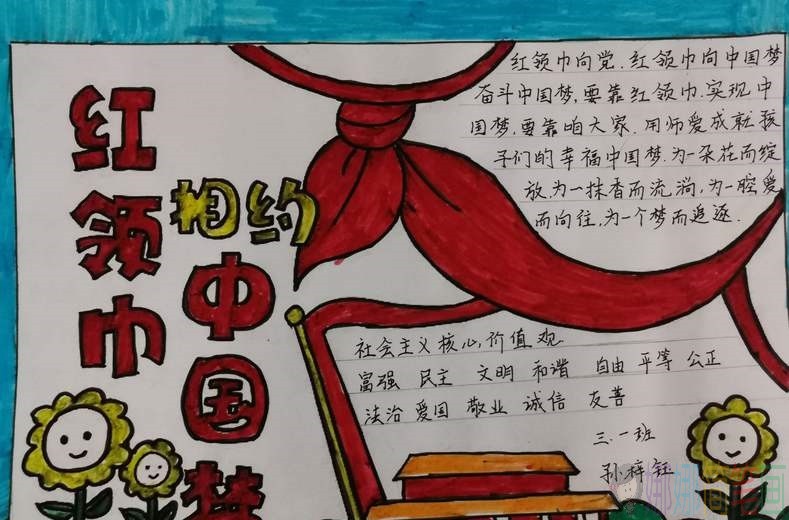 红领巾
相约
中国梦
红领巾向党.红领巾向中国梦
奋斗中国梦,要靠红领巾.实现中
国梦.要靠咱大家.用师爱成就孩
子们的幸福中国梦.为一朵花而绽
放,为一抹香而流淌,为一腔爱
而向往,为一个梦而追逐.
社会主义核心,价值观
富强 民主 文明 和谐 自由 平等 公正
法治 爱国 敬业 诚信 友善
三.一班
孙梓钰